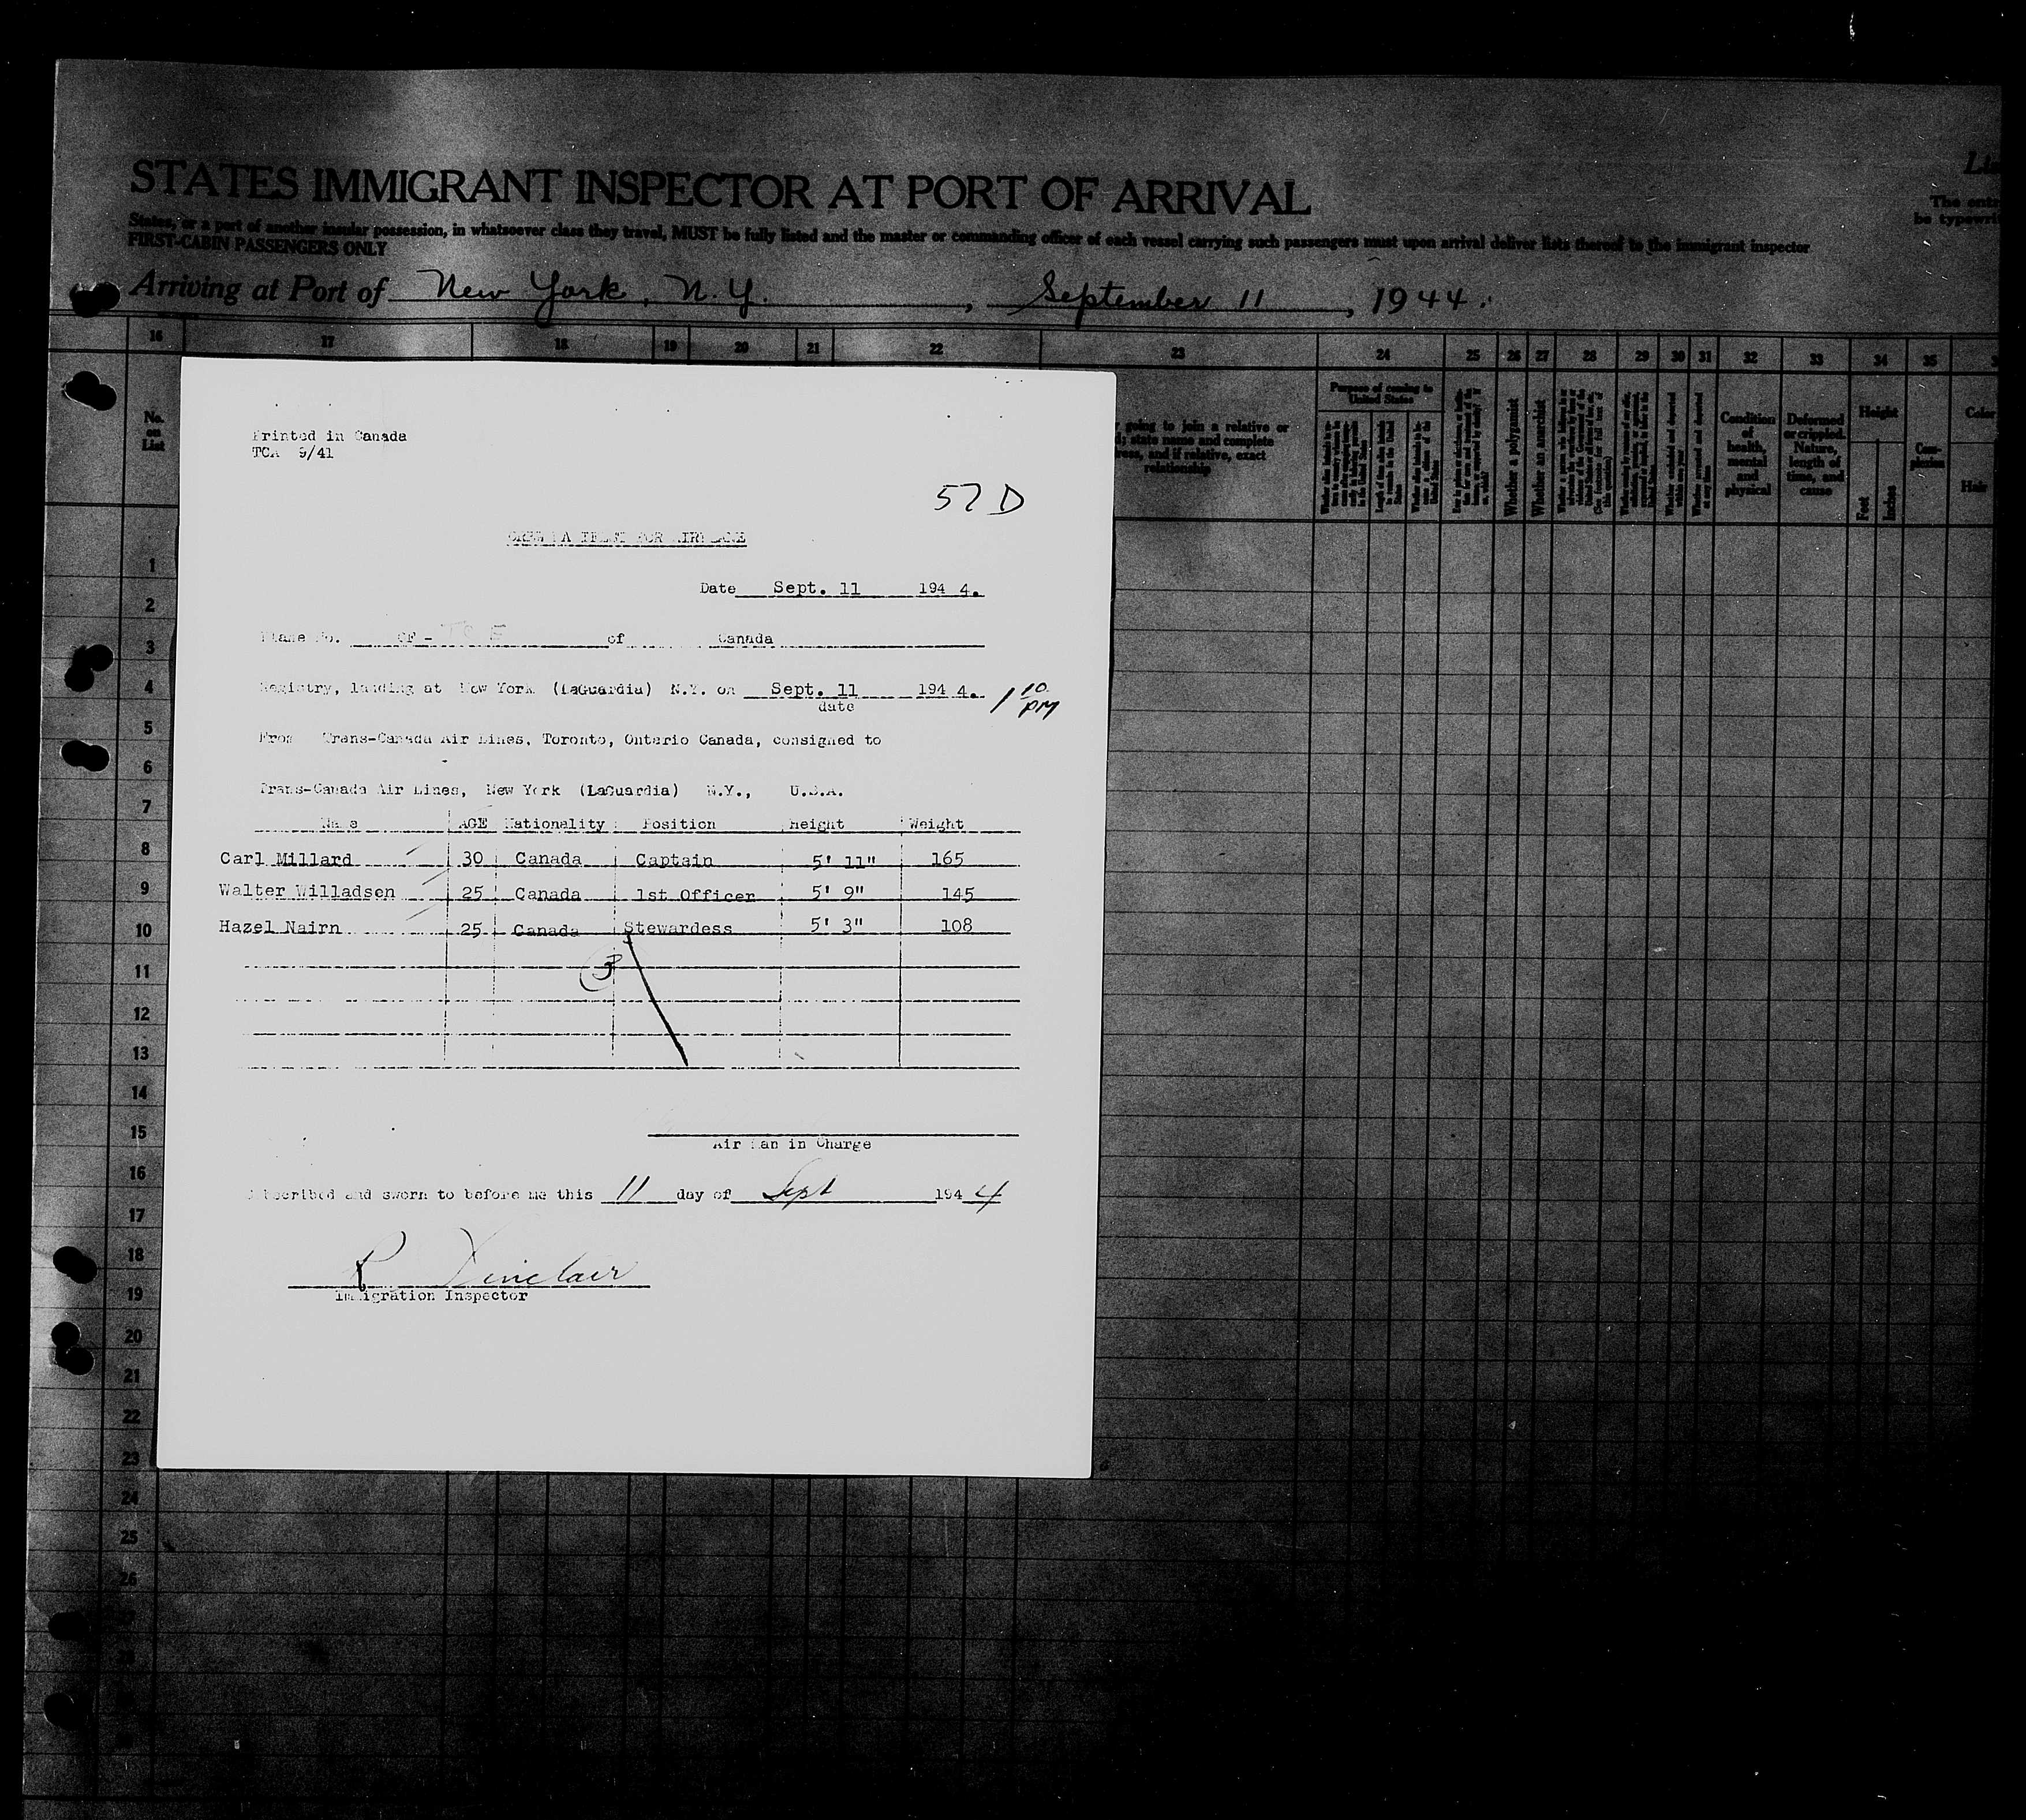 STATES IMMIGRANT INSPECTOR AT PORT OF ARRIVAL
States, or a part of another insular possession, in whatsoever class they travel, MUST be fully listed and the master or commanding officer of each vessel carrying such passengers must upon arrival deliver lists thereof to the immigrant inspector
The entr
be typewri
FIRST-CABIN PASSENGERS ONLY
Arriving at Port of New York, N.Y., September 11, 1944.
16 17 18 19 20 21 22 23 24 25 26 27 28 29 30 31 32 33 34 35
No. on List
going to join a relative or
state name and complete
and if relative, exact
relationship
Purpose of coming to United States
Whether a polygamist
Whether an anarchist
Condition of health, mental and physical
Deformed or crippled. Nature, length of time, and cause
Height
Feet
Inches
Com-plexion
Color
Hair
Printed in Canada
TCA 9/41
57 D
CREW MANIFEST FOR AIRPLANE
Date Sept. 11 194 4.
Plane No. CF - TCE of Canada
Registry, landing at New York (LaGuardia) N.Y. on Sept. 11 194 4. 1 10 PM
date
From Trans-Canada Air Lines, Toronto, Ontario Canada, consigned to
Trans-Canada Air Lines, New York (LaGuardia) N.Y., U.S.A.
Name AGE Nationality Position Height Weight
Carl Millard 30 Canada Captain 5' 11" 165
Walter Willadsen 25 Canada 1st Officer 5' 9" 145
Hazel Nairn 25 Canada Stewardess 5' 3" 108
3
Air Man in Charge
Subscribed and sworn to before me this 11 day of Sept 194 4
R Sinclair
Immigration Inspector
1
2
3
4
5
6
7
8
9
10
11
12
13
14
15
16
17
18
19
20
21
22
23
24
25
26